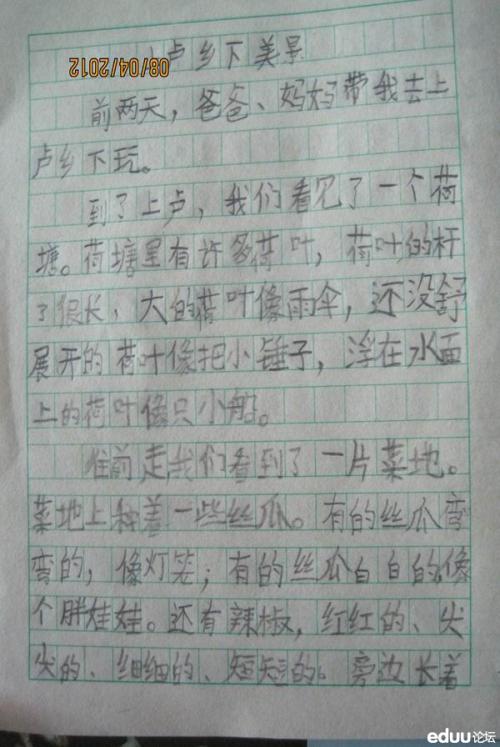 上卢乡下美景
08/04/2012
前两天，爸爸、妈妈带我去上
卢乡下玩。
到了上卢，我们看见了一个荷
塘。荷塘里有许多荷叶，荷叶的杆
子很长、大的荷叶像雨伞，还没舒
展开的荷叶像把小锤子，浮在水面
上的荷叶像只小船。
往前走我们看到了一片菜地。
菜地上种着一些丝瓜。有的丝瓜弯
弯的，像灯笼；有的丝瓜白白的像
个胖娃娃。还有辣椒，红红的、尖
尖的、细细的、短短的。旁边长着
eduu论坛